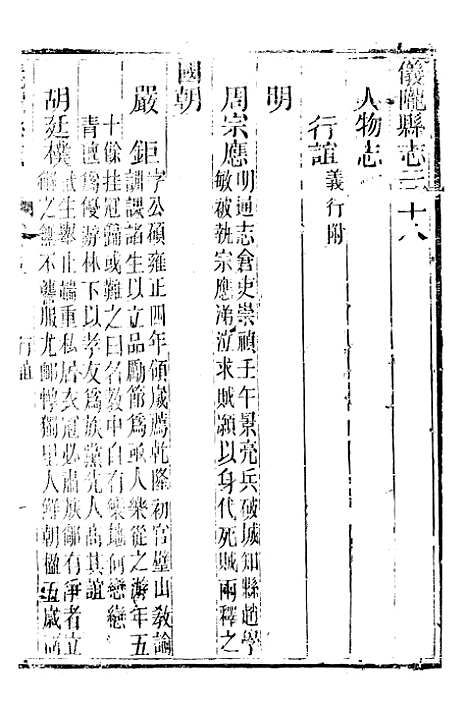 儀隴縣志 二十八
人物志
行誼 義行附
明
周宗應 明通志會史崇禎壬午景亮兵破城知縣趙學
敏被執宗應涕泣求賊願以身代死賊兩釋之
國朝
嚴鉅 字公碩雍正四年領歲薦乾隆初官璧山敎諭
訓課諸生以立品勵節爲亟人樂從之游年五
十餘挂冠歸或難之曰名教中自有樂地何戀戀
青氊爲優游林下以孝友爲族黨先人咸高其誼
胡廷樸 武生舉止端重私居衣冠必肅族鄰有爭者立
解之無不讋服尤鄉
人
行誼